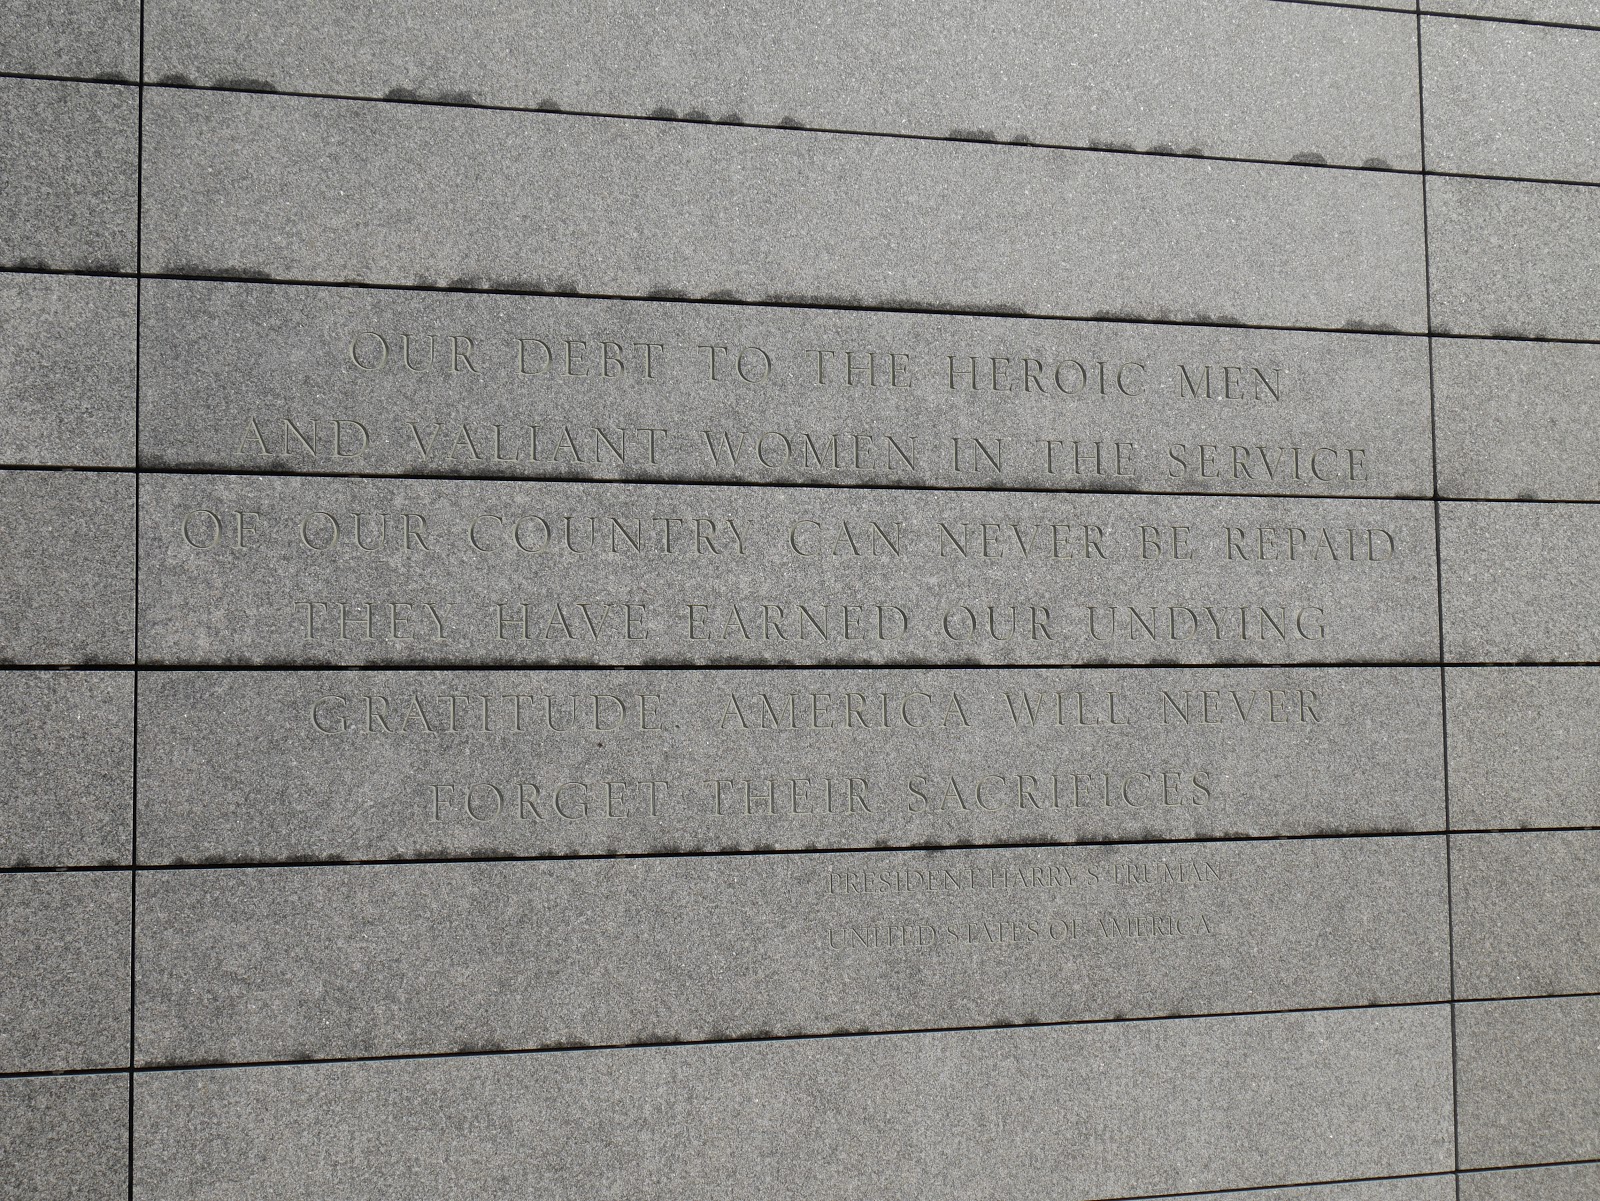 OUR DEBT TO THE HEROIC MEN
AND VALIANT WOMEN IN THE SERVICE
OF OUR COUNTRY CAN NEVER BE REPAID
THEY HAVE EARNED OUR UNDYING
GRATITUDE. AMERICA WILL NEVER
FORGET THEIR SACRIFICES
PRESIDENT HARRY S TRUMAN
UNITED STATES OF AMERICA